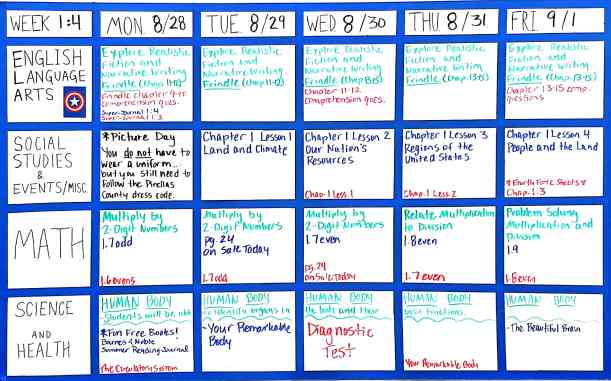 WEEK 1:4
MON 8/28
TUE 8/29
WED 8/30
THU 8/31
FRI 9/1
ENGLISH
LANGUAGE
ARTS
Explore Realistic
Fiction and
Narrative Writing
Frindle (Chap 11-12)
Frindle chapter 9-10
comprehension ques.
Super Journal 1:4
Super Journal 1:3
Explore Realistic
Fiction and
Narrative Writing
Frindle (Chap 11-12)
Explore Realistic
Fiction and
Narrative Writing
Frindle (Chap 13-15)
Chapter 11-12
comprehension ques.
Explore Realistic
Fiction and
Narrative Writing
Frindle (Chap. 13-15)
Explore Realistic
Fiction and
Narrative Writing
Frindle (Chap. 13-15)
Chapter 13-15 comp.
questions
SOCIAL
STUDIES
&
EVENTS/MISC.
*Picture Day
You do not have to
wear a uniform...
but you still need to
follow the Pinellas
County dress code.
Chapter 1 Lesson 1
Land and Climate
Chapter 1 Lesson 2
Our Nation's
Resources
Chap. 1 Less. 1
Chapter 1 Lesson 3
Regions of the
United States
Chap. 1 Less. 2
Chapter 1 Lesson 4
People and the Land
*Fourth Force Sheets*
Chap. 1:3
MATH
Multiply by
2-Digit Numbers
1.7 odd
1.6 evens
Multiply by
2-Digit Numbers
pg. 24
on Sale Today
1.7 odd
Multiply by
2-Digit Numbers
1.7 even
pg. 24
on Sale Today
Relate Multiplication
to Division
1.8 even
1.7 even
Problem Solving
Multiplication and
Division
1.9
1.8 even
SCIENCE
AND
HEALTH
HUMAN BODY
Students will be able
*Fun Free Books!
Barnes & Noble
Summer Reading Journal
The Circulatory System
HUMAN BODY
to identify organs in
-Your Remarkable
Body
HUMAN BODY
the body and their
Diagnostic
Test
HUMAN BODY
basic functions.
Your Remarkable Body
HUMAN BODY
-The Beautiful Brain